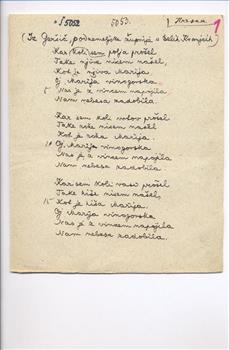 S 5052 5053. 1
(Iz podzemeljske županije v Belih Kranjcih
Kar koli sem polja prošel
Take njive nisem našel,
Kot je njiva Marija.
Oj Marija vinogorska
5 Nas je z vincem napojila
Nam nebesa zadobila.
Kar sem koli prošel
Take rože nisem našel
Kot je roža Marija.
10 Oj Marija vinogorska
Nas je z vincem napojila
Nam nebesa zadobila.
Kar sem koli vasi prošel
Take hiše nisem našel,
15 Kot je hiša Marija.
Oj Marija vinogorska
Nas je z vincem napojila
Nam nebesa zadobila.